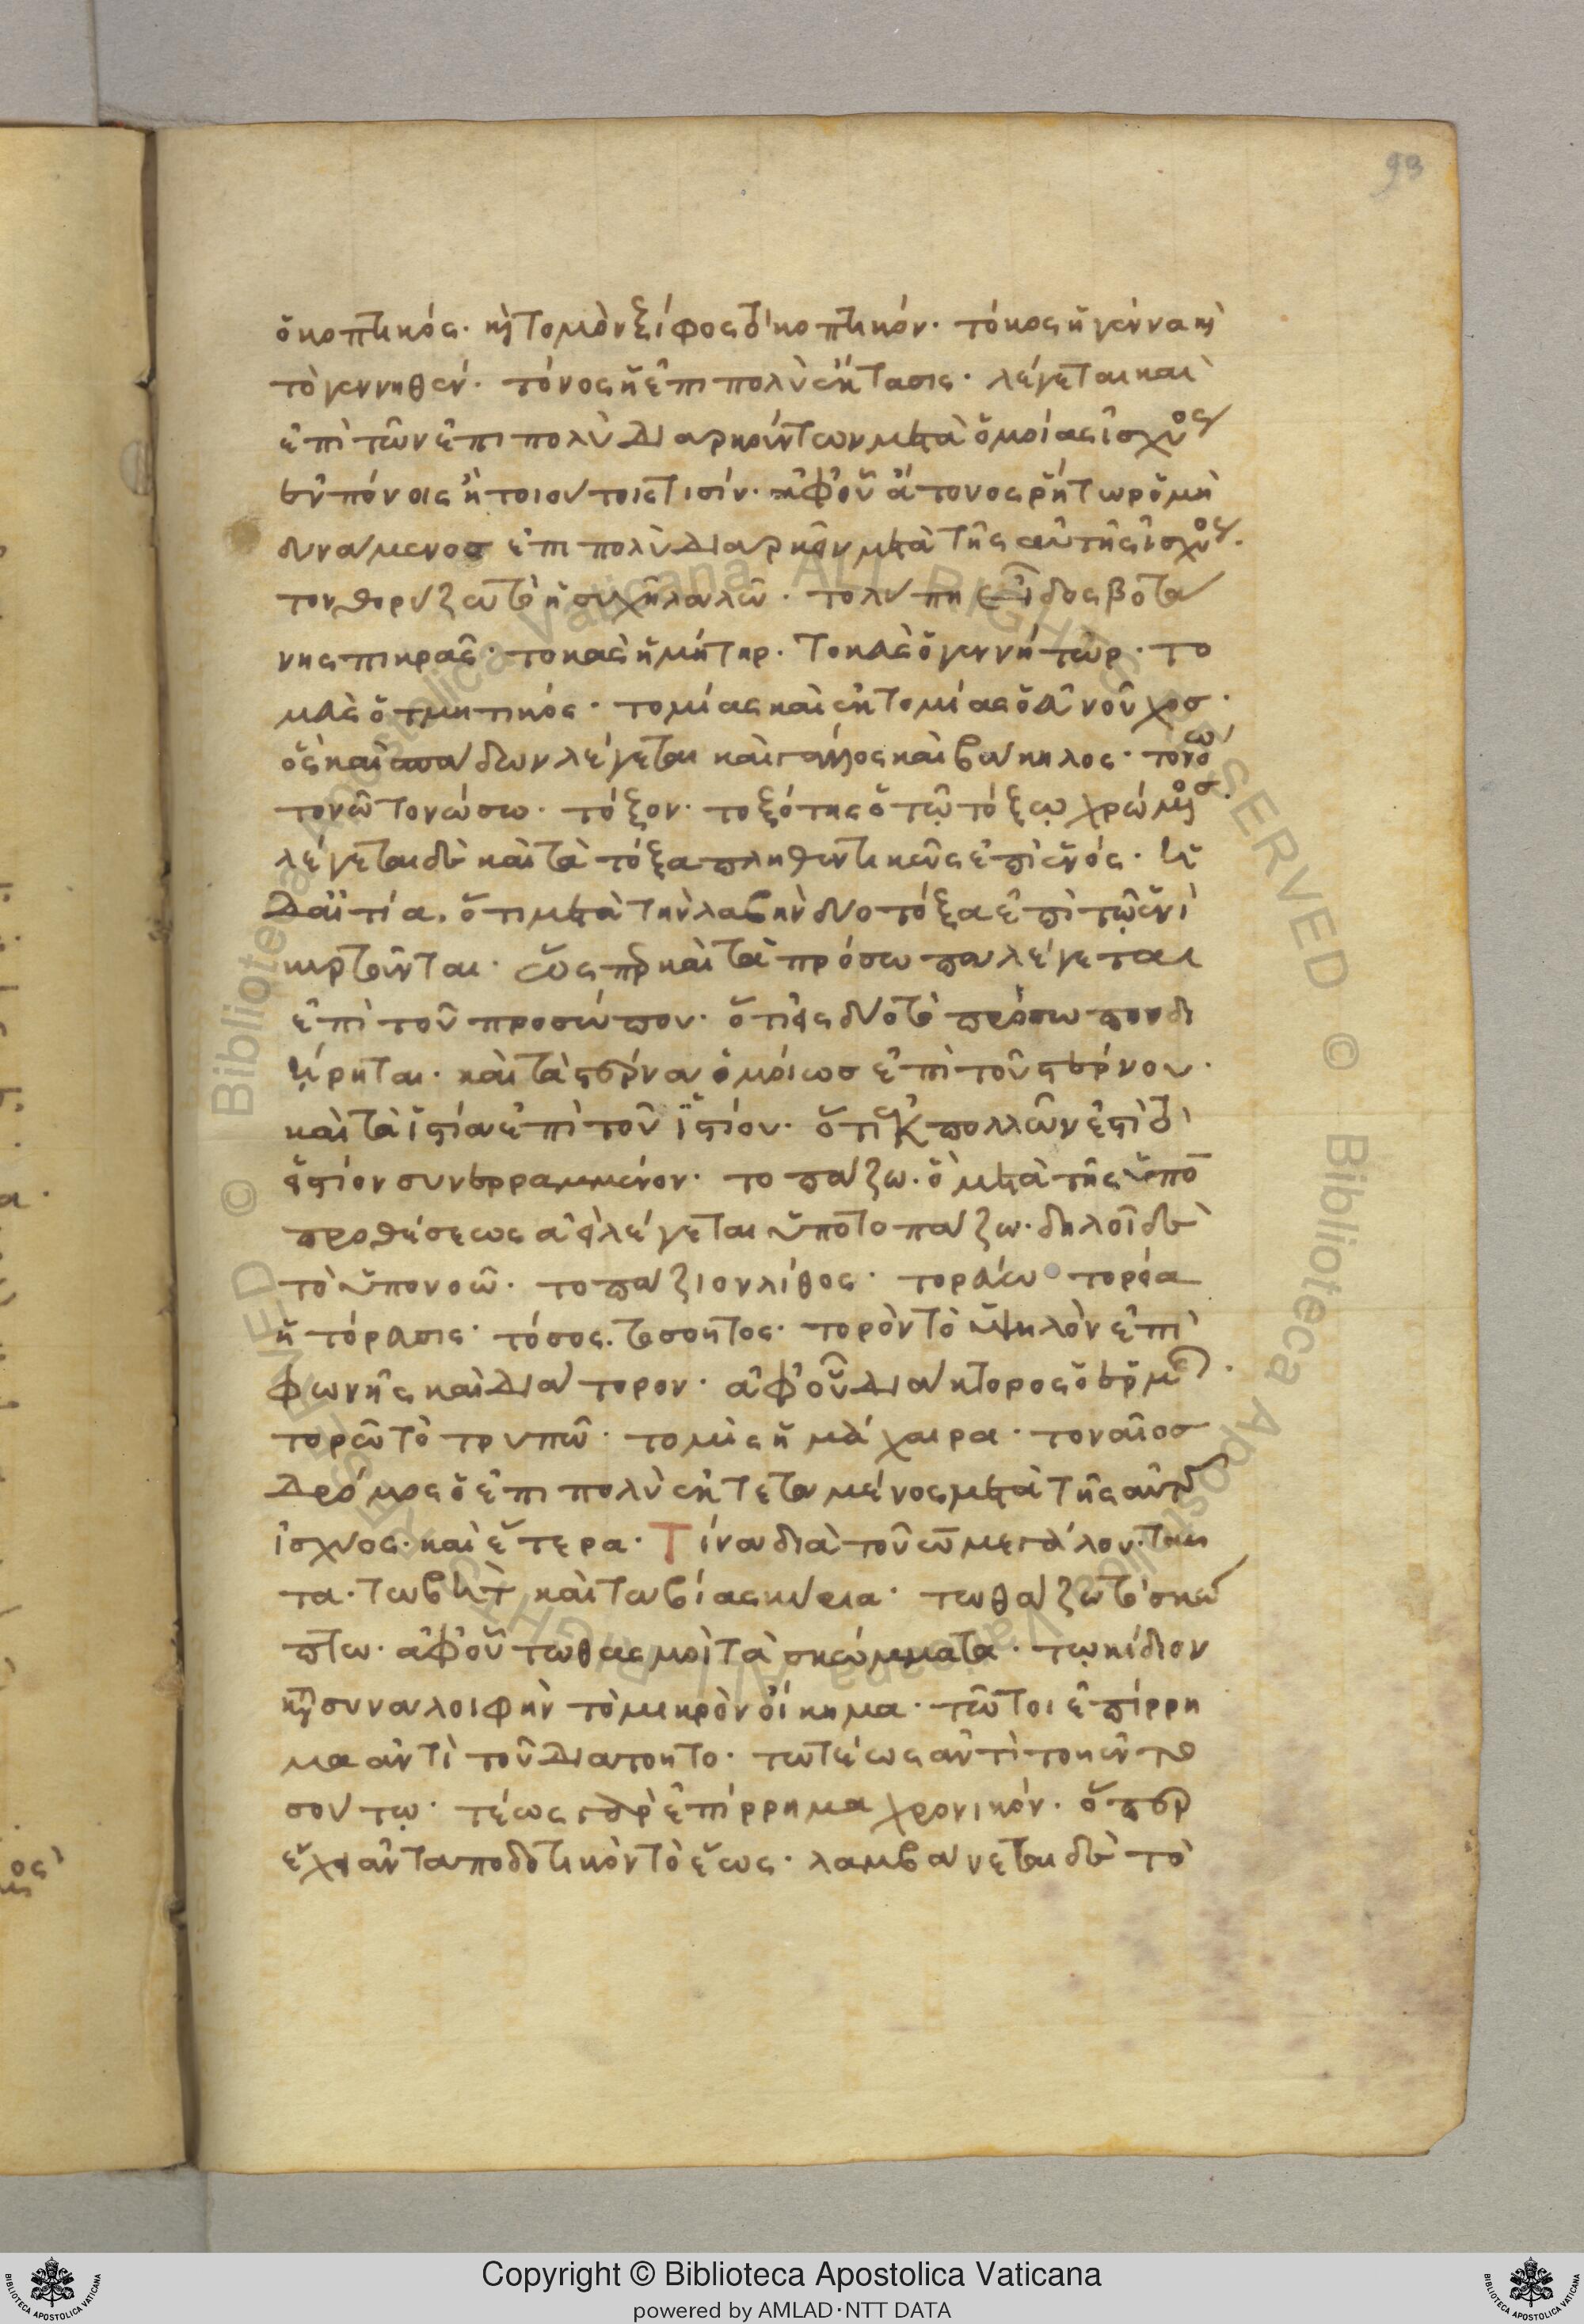 93
ὁ κοπτικός· καὶ τομὸν ξίφος τὸ κοπτικόν· τόκος ἡ γέννα καὶ
τὸ γεννηθέν· τόνος ἡ ἐπιπολὺ ἔκτασις· λέγεται καὶ
ἐπὶ τῶν ἐπιπολὺ διαρκούντων μετὰ ὁμοίας ἰσχύος
ἐν πόνοις ἢ τοιούτοις τισίν· ἀφ' οὗ ἄτονος ῥήτωρ ὁ μὴ
δυνάμενος ἐπιπολὺ διαρκεῖν μετὰ τῆς αὐτῆς ἰσχύος·
τονθορύζω τὸ ἡσυχῆ λαλῶ· τολύπη εἶδος βοτά
νης πικρᾶς· τοκὰς ἡ μήτηρ· τοκεὺς ὁ γεννήτωρ· το
μεὺς ὁ τμητικός· τομίας καὶ ἐκτομίας ὁ εὐνοῦχος·
ὃς καὶ σπάδων λέγεται καὶ γάλλος καὶ βάκηλος· τονῶ
τονῶ τονώσω· τόξον· τοξότης ὁ τῷ τόξῳ χρώμενος·
λέγεται δὲ καὶ τὰ τόξα πληθυντικῶς ἐπὶ ἑνός· ἡ
δὲ αἰτία, ὅτι μετὰ τὴν λαβὴν δύο τόξα ἐπὶ τῷ ἑνὶ
κυρτοῦνται· ὥσπερ καὶ τὰ πρόσωπα λέγεται
ἐπὶ τοῦ προσώπου· ὅτι εἰς δύο τὸ πρόσωπον δι
ῄρηται· καὶ τὰ στέρνα ὁμοίως ἐπὶ τοῦ στέρνου·
καὶ τὰ ἱστία ἐπὶ τοῦ ἱστίου· ὅτι ἐκ πολλῶν ἐστὶ τὸ
ἱστίον συνερραμμένον· τοπάζω· ὃ μετὰ τῆς ὑπὸ
προθέσεως ἀεὶ λέγεται ὑποτοπάζω· δηλοῖ δὲ
τὸ ὑπονοῶ· τοπάζιον λίθος· τορεύω τορεία
ἡ τόρευσις· τόσος· τοσοῦτος· τορὸν τὸ ὑψηλὸν ἐπὶ
φωνῆς καὶ διάτορον· ἀφ' οὗ διάκτορος ὁ ἑρμῆς·
τορῶ τὸ τρυπῶ· τομὶς ἡ μάχαιρα· τοναῖος
δρόμος ὁ ἐπιπολὺ ἐκτεταμένος μετὰ τῆς αὐτῆς
ἰσχύος· καὶ ἕτερα· Τίνα διὰ τοῦ ω μεγάλου· ταῦ
τα· τωβὴτ καὶ τωβίας κύρια· τωθάζω τὸ σκώ
πτω· ἀφ' οὗ τωθασμοὶ τὰ σκώμματα· τῳκίδιον
κατὰ συναλοιφὴν τὸ μικρὸν οἴκημα· τῶ τοι ἐπίρρη
μα ἀντὶ τοῦ διατοῦτο· τωτέως ἀντὶ τοῦ ἐν το
σούτῳ· τέως γὰρ ἐπίρρημα χρονικόν· ὅπερ
ἔχει ἀνταποδοτικὸν τὸ ἕως· λαμβάνεται δὲ τὸ
Copyright © Biblioteca Apostolica Vaticana
powered by AMLAD·NTT DATA